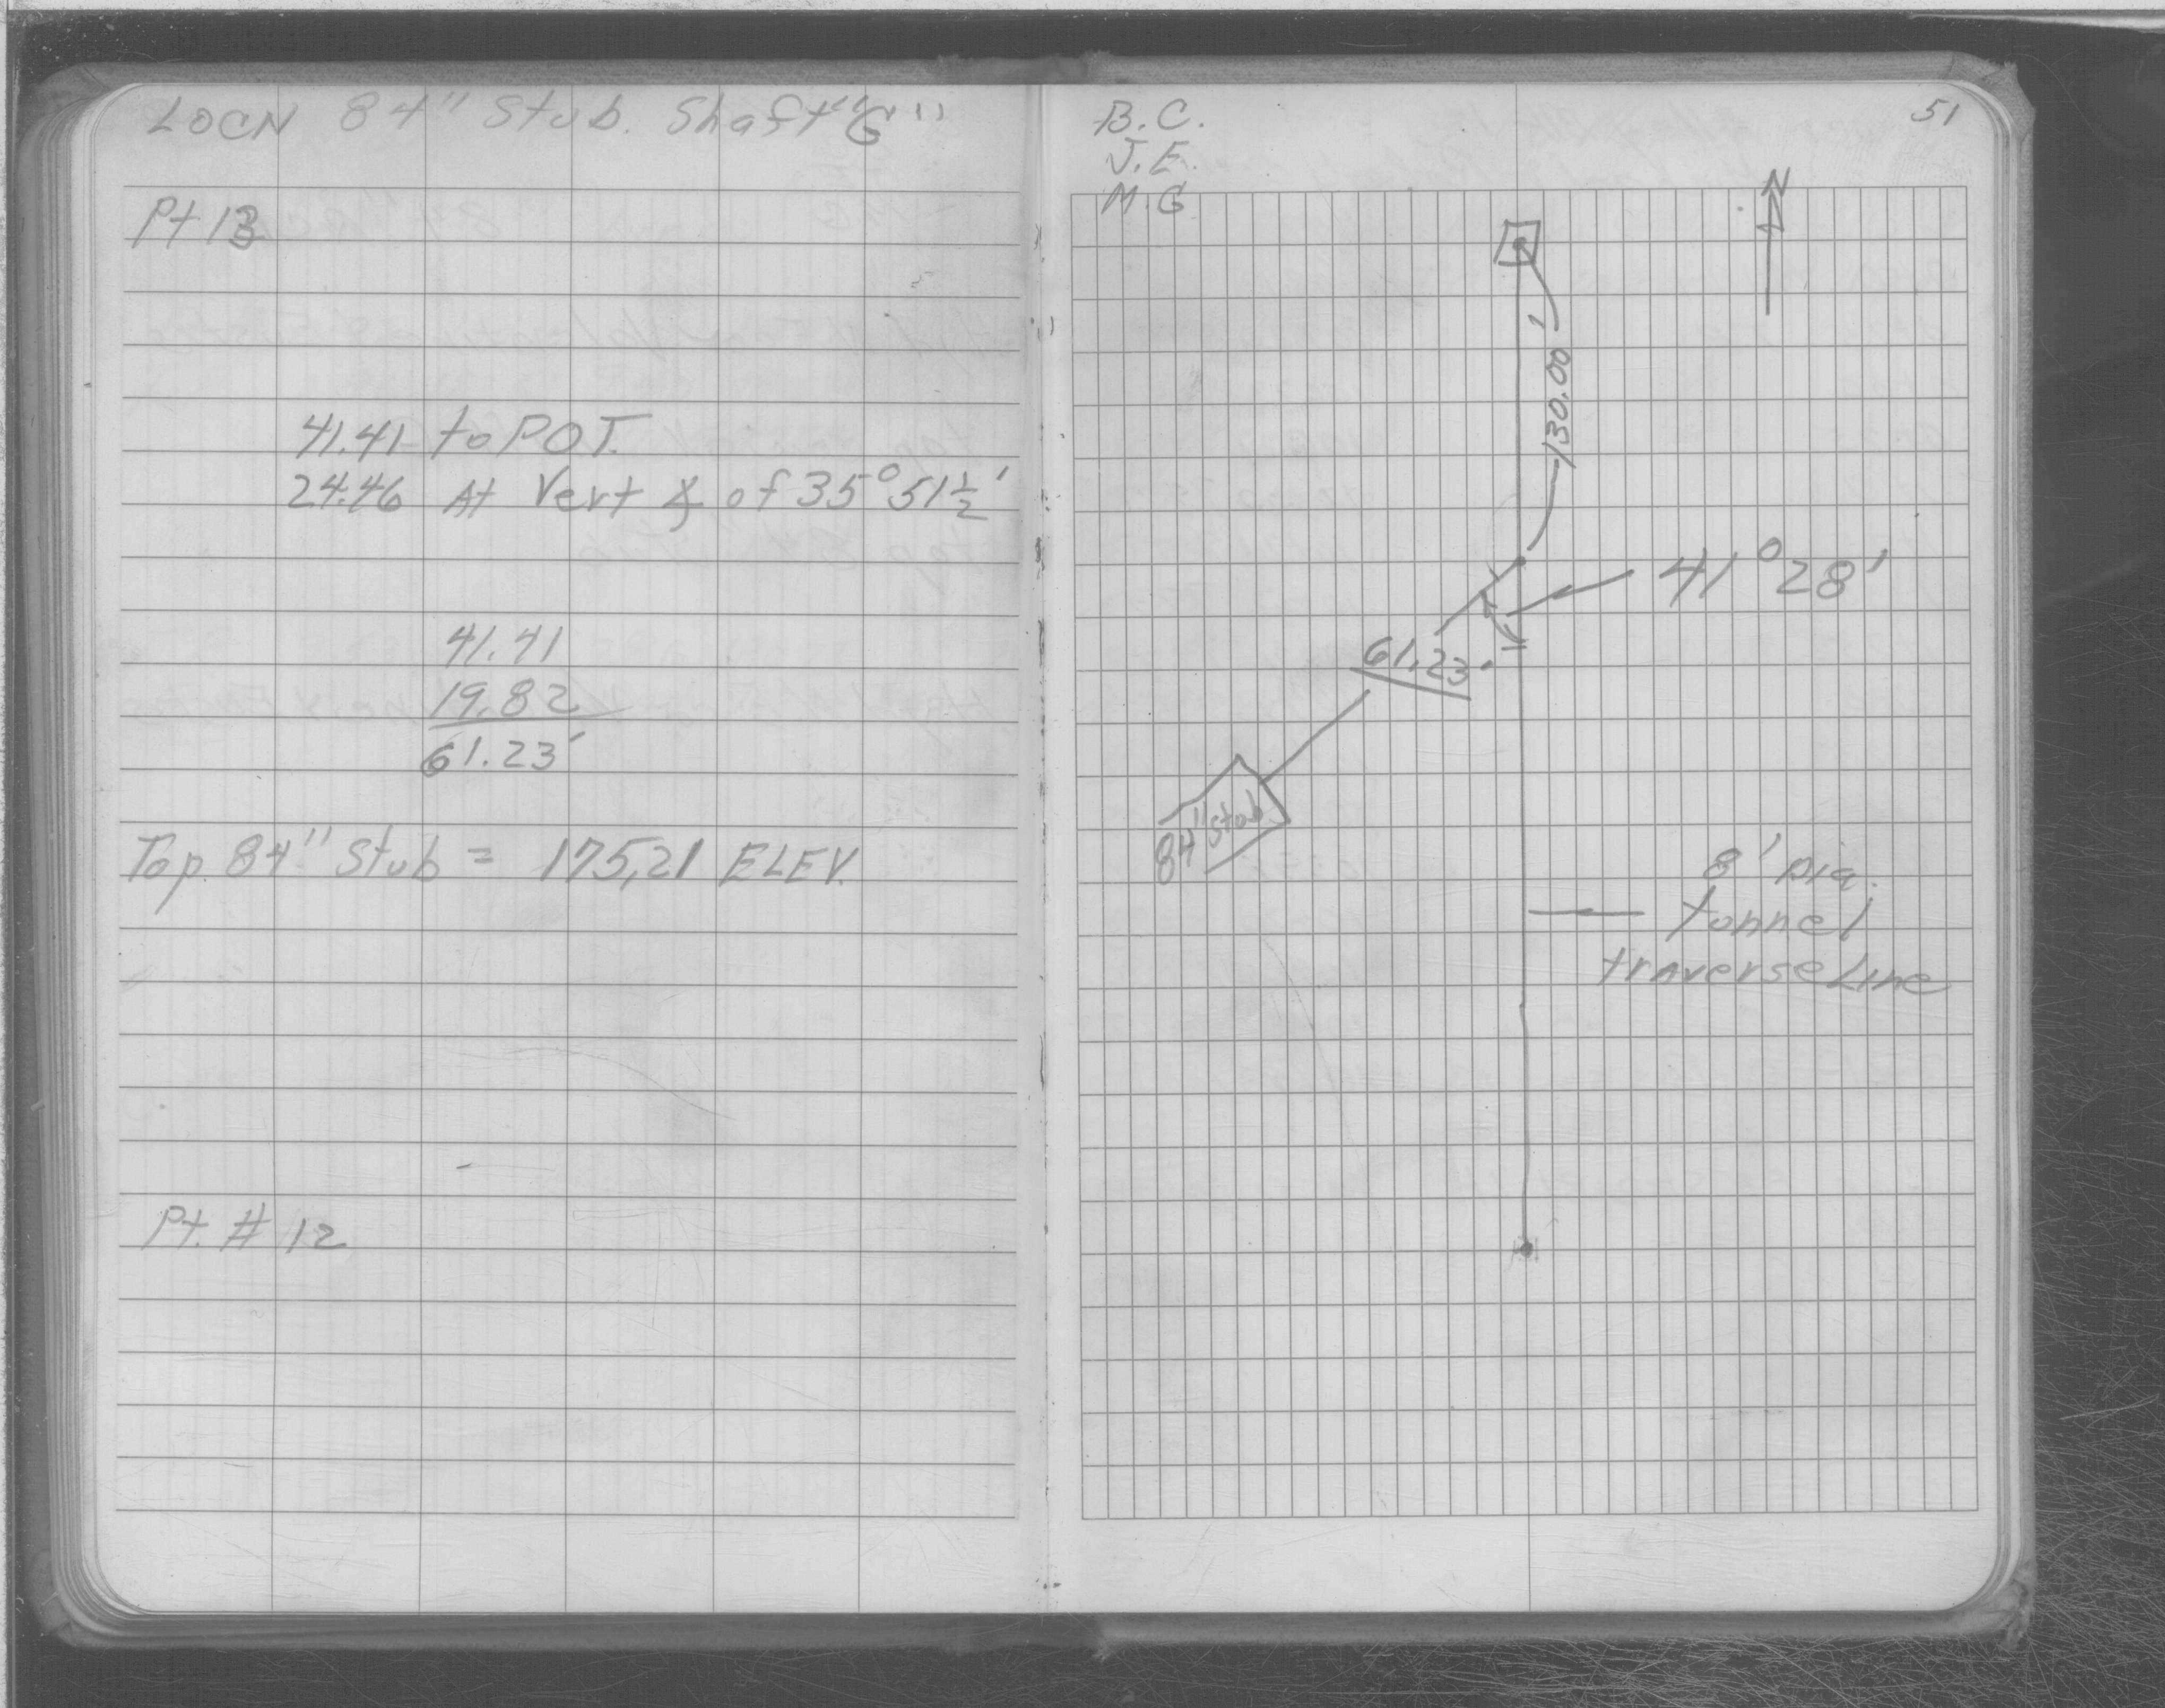 LOCN 84" Stub. Shaft "G"
Pt 13
41.41 to POT.
24.46 At Vert ∡ of 35° 51½'
41.41
19.82
61.23'
Top. 84" Stub = 175,21 ELEV.
Pt. # 12
B.C.
J.E.
M.G
51
N
130.00'
41° 28'
61.23'
84" Stub
8' Dia.
tunnel
traverse Line